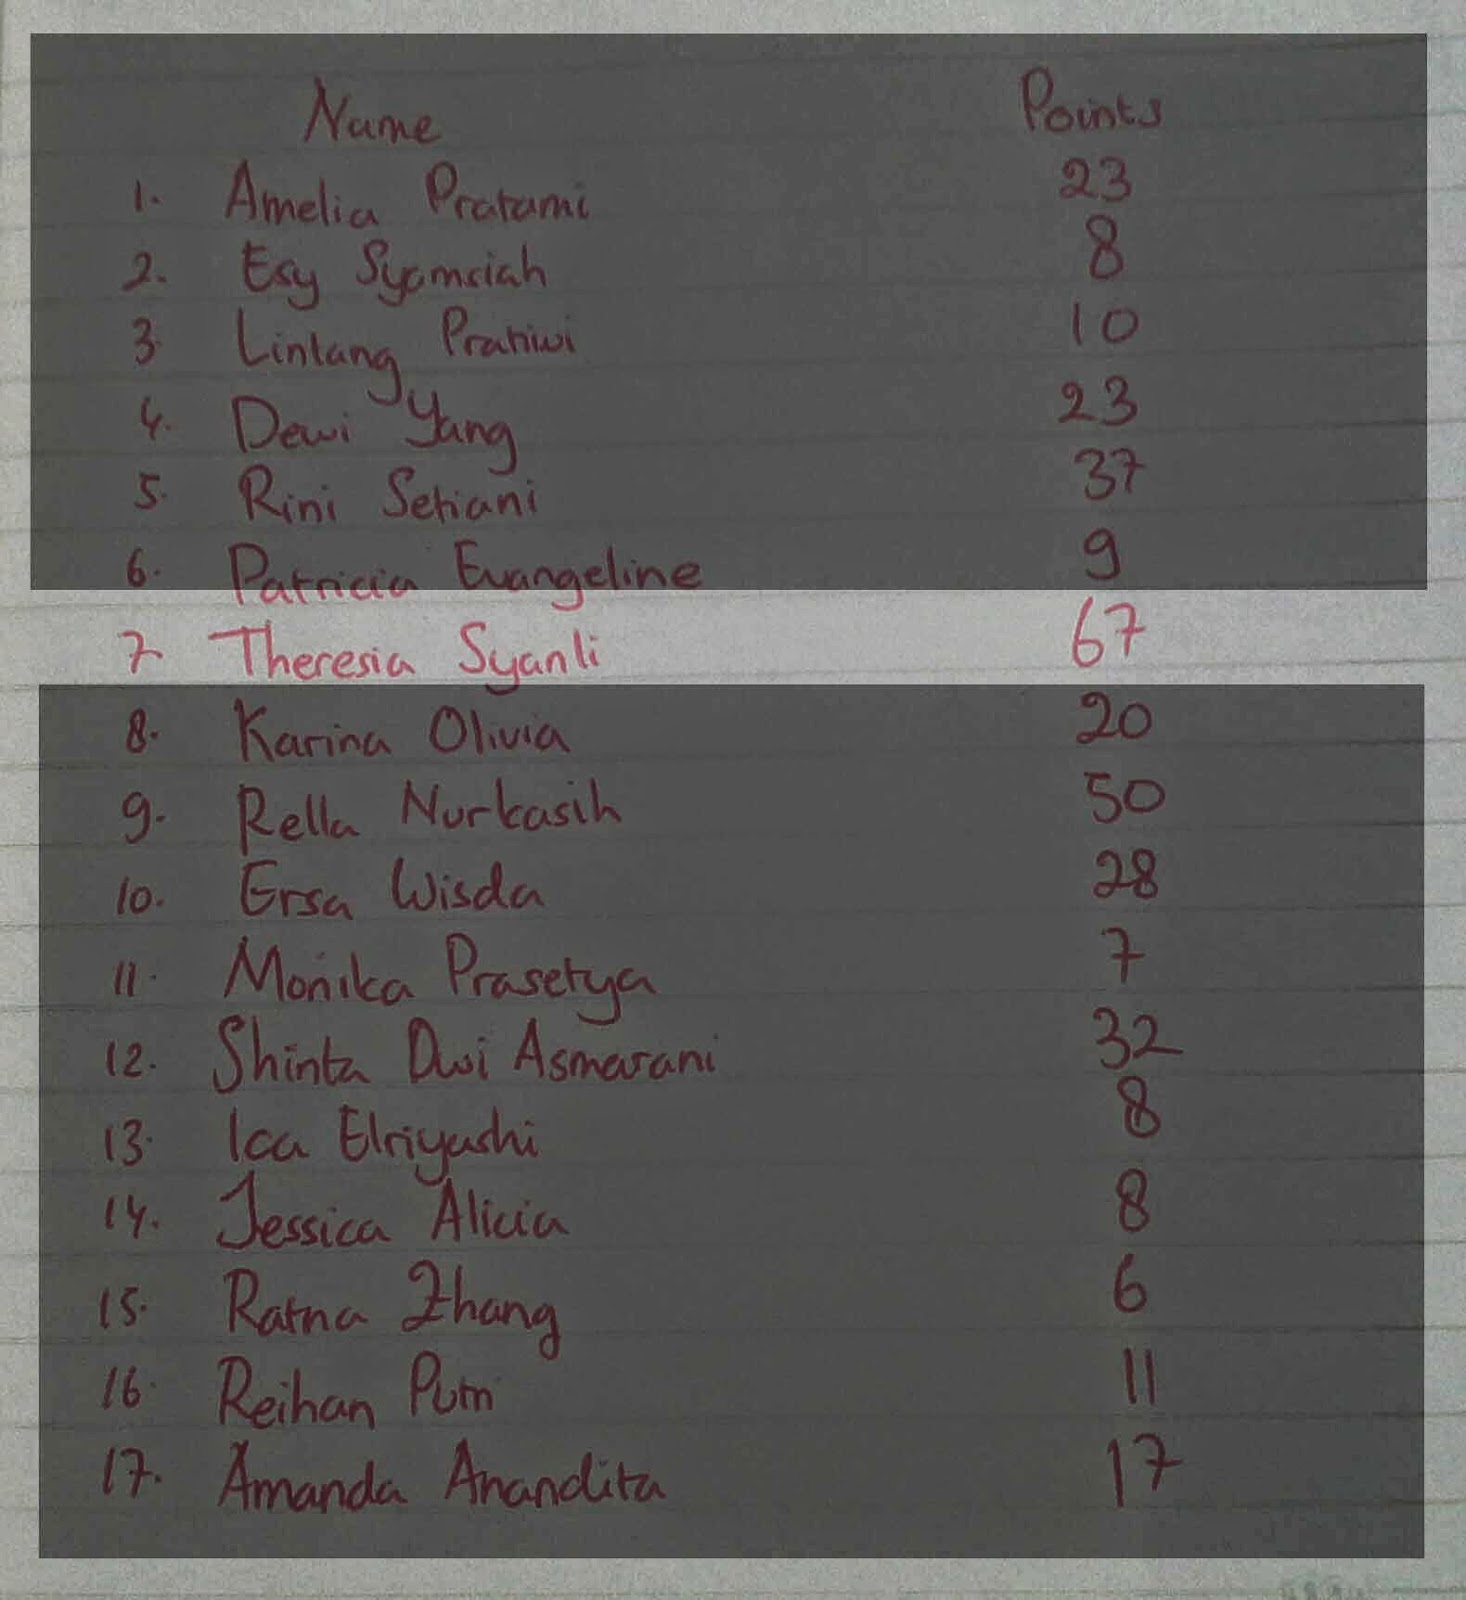 Name Points
1. Amelia Pratami 23
2. Esy Syamsiah 8
3. Lintang Pratiwi 10
4. Dewi Yang 23
5. Rini Setiani 37
6. Patricia Evangeline 9
7 Theresia Syanli 67
8. Karina Olivia 20
9. Rella Nurkasih 50
10. Ersa Wisda 28
11. Monika Prasetya 7
12. Shinta Dwi Asmarani 32
13. Ica Elriyashi 8
14. Jessica Alicia 8
15. Ratna Zhang 6
16. Reihan Putri 11
17. Amanda Anandita 17